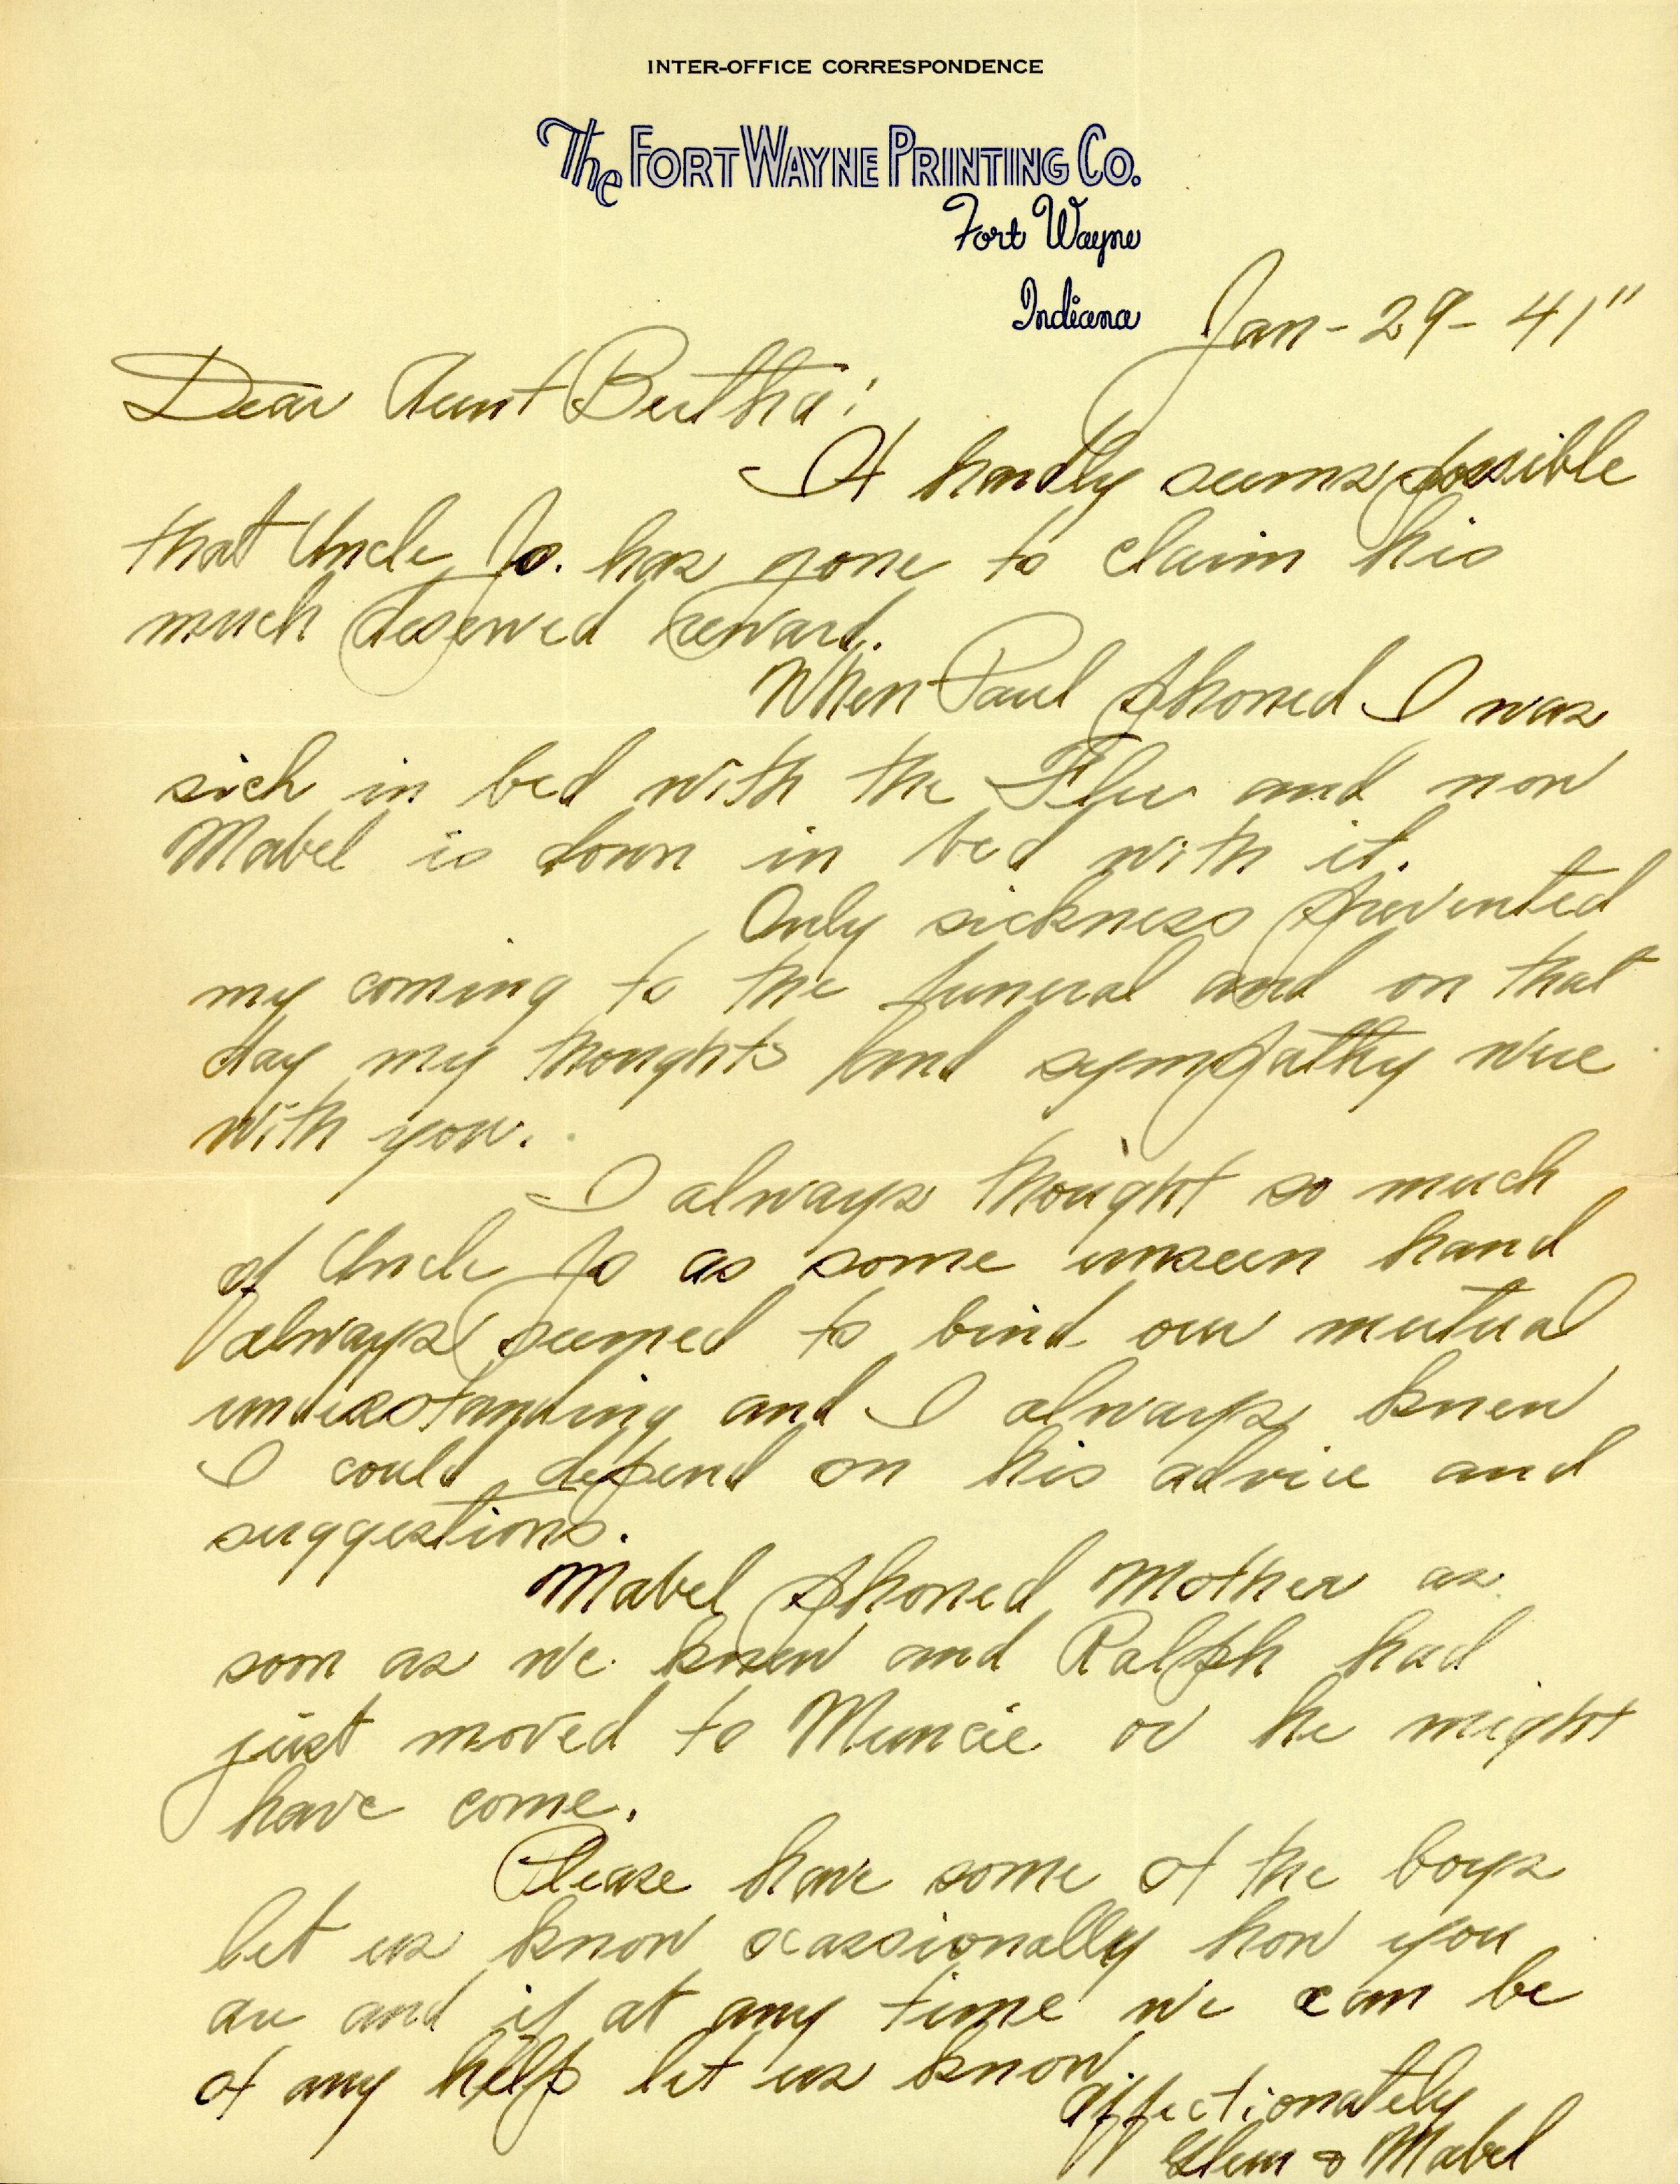 INTER-OFFICE CORRESPONDENCE
The FORT WAYNE PRINTING CO.
Fort Wayne
Indiana
Jan - 29 - 41"
Dear Aunt Bertha:
It hardly seems possible
that Uncle Jo. has gone to claim his
much deserved reward.
When Paul phoned I was
sick in bed with the Flu and now
Mabel is down in bed with it.
Only sickness prevented
my coming to the funeral and on that
day my thoughts and sympathy were
with you.
I always thought so much
of Uncle Jo as some unseen hand
always seemed to bind our mutual
understanding and I always knew
I could depend on his advice and
suggestions.
Mabel phoned Mother as
soon as we knew and Ralph had
just moved to Muncie or he might
have come.
Please have some of the boys
let us know ocassionally how you
are and if at any time we can be
of any help let us know
Affectionately
Glenn & Mabel